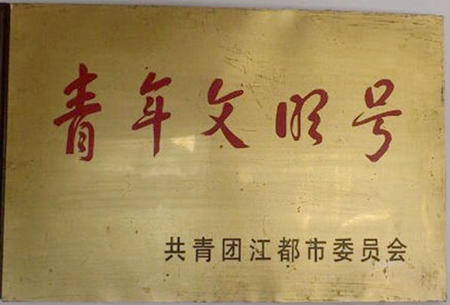 青年文明号
共青团江都市委员会